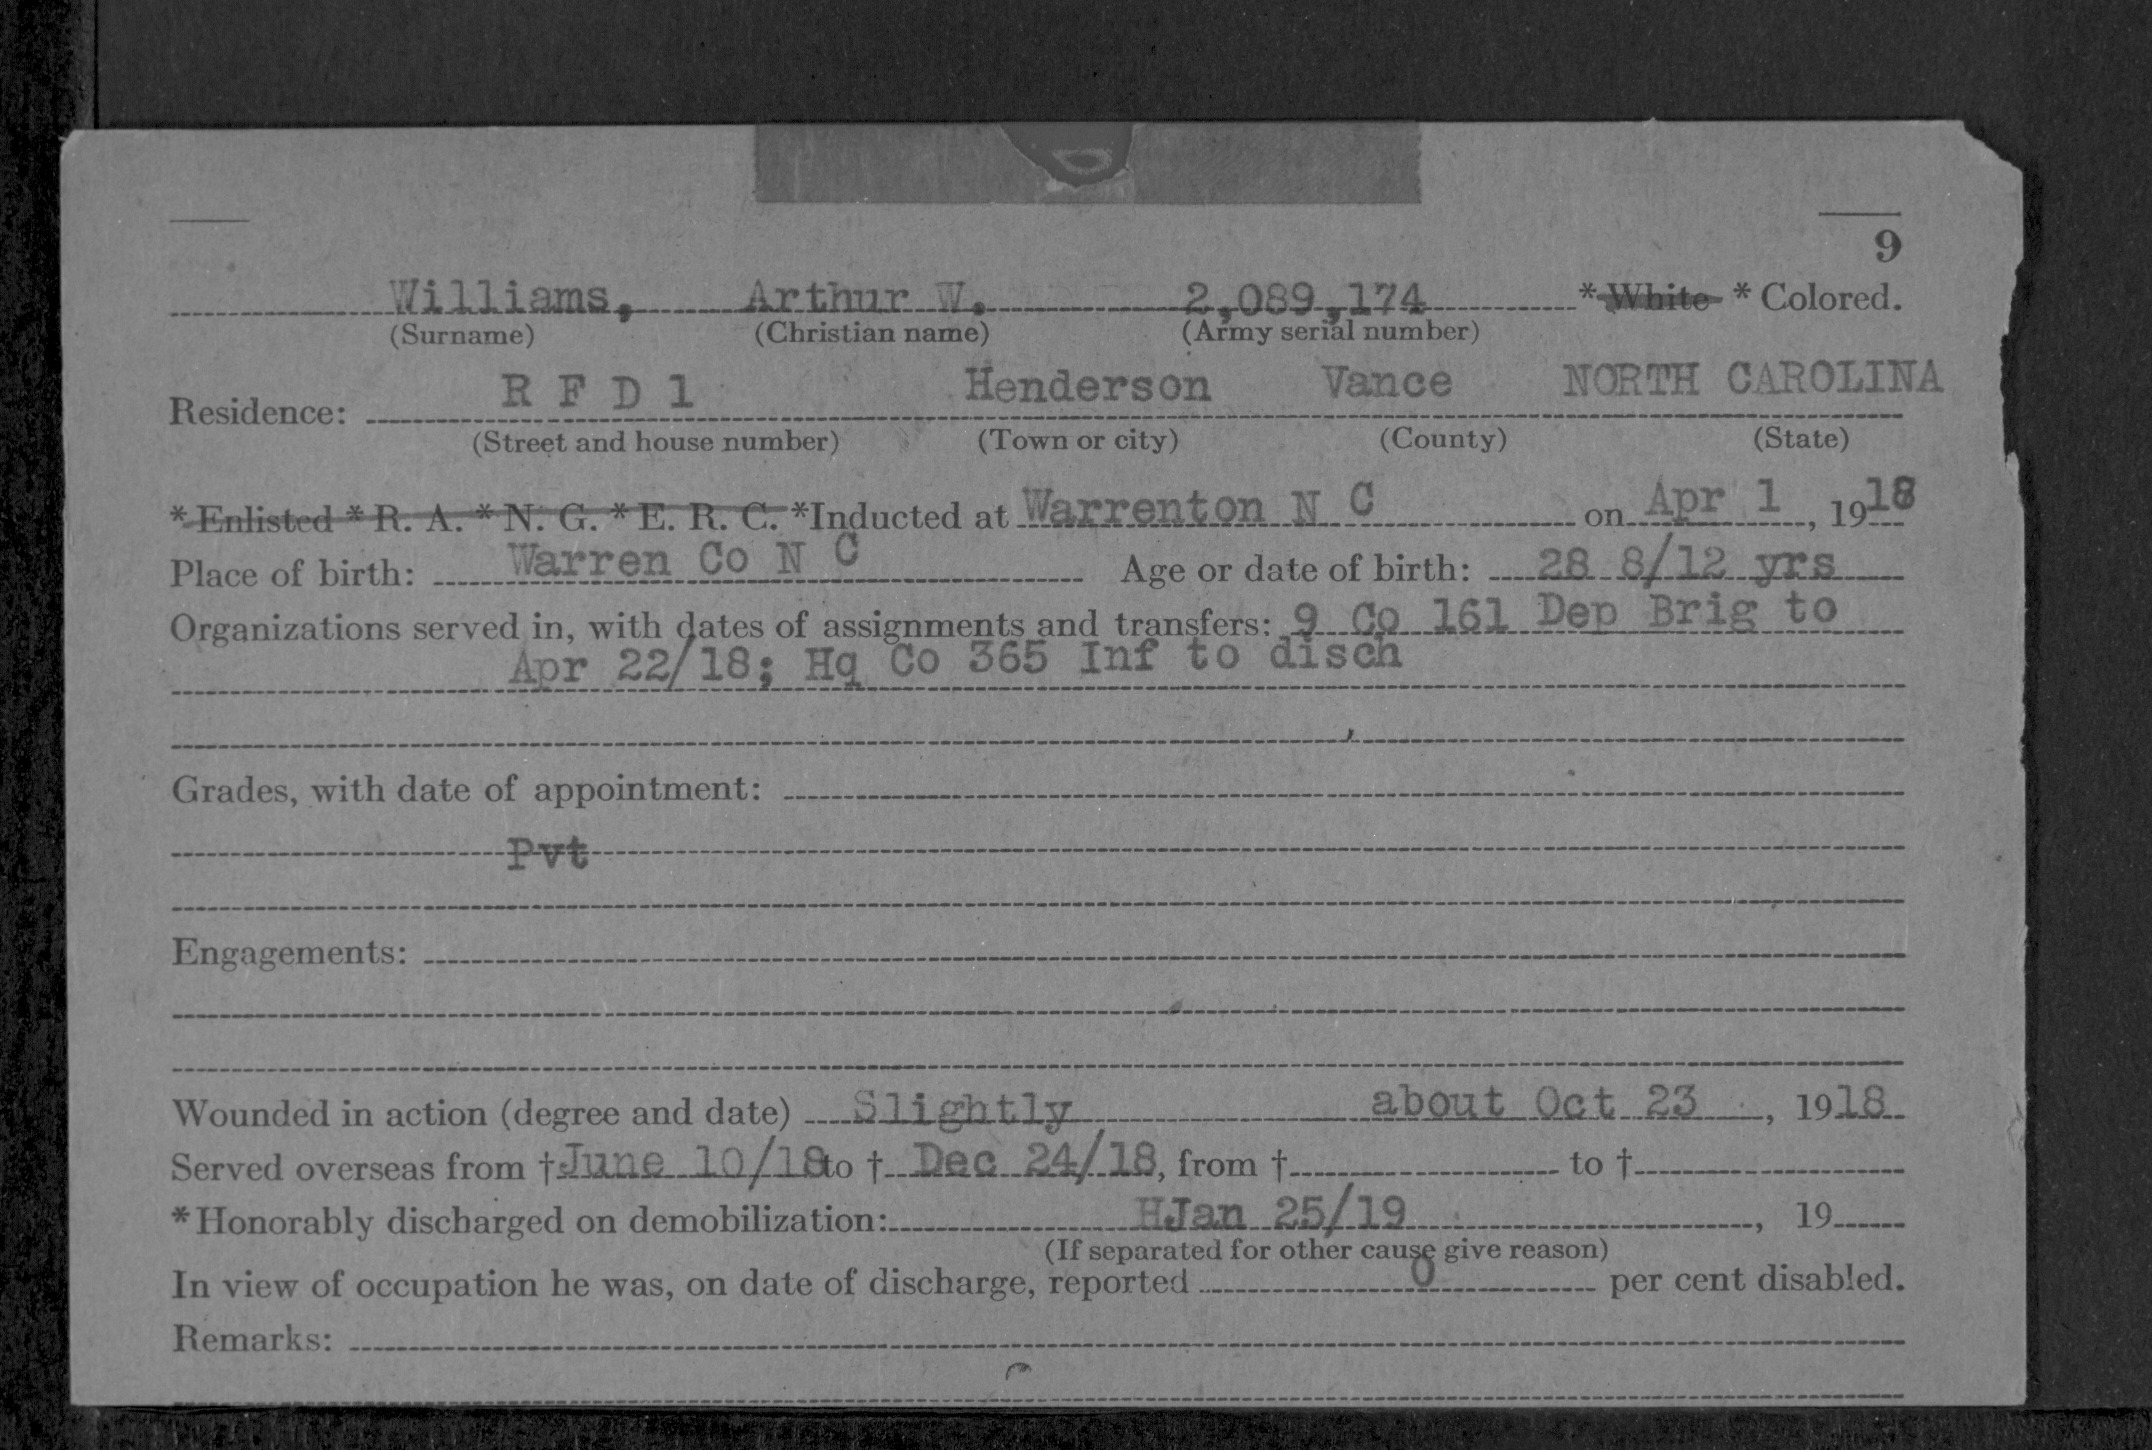 9
Williams, Arthur W. 2,089,174 * White * Colored.
(Surname) (Christian name) (Army serial number)
R F D 1 Henderson Vance NORTH CAROLINA
Residence:
(Street and house number) (Town or city) (County) (State)
* Enlisted * R. A. * N. G. * E. R. C. *Inducted at Warrenton N C on Apr 1, 1918
Place of birth: Warren Co N C Age or date of birth: 28 8/12 yrs
Organizations served in, with dates of assignments and transfers: 9 Co 161 Dep Brig to
Apr 22/18; Hq Co 365 Inf to disch
Grades, with date of appointment:
Pvt
Engagements:
Wounded in action (degree and date) Slightly about Oct 23, 1918
Served overseas from † June 10/18 to † Dec 24/18, from † to †
* Honorably discharged on demobilization: HJan 25/19, 19
(If separated for other cause give reason)
In view of occupation he was, on date of discharge, reported 0 per cent disabled.
Remarks: